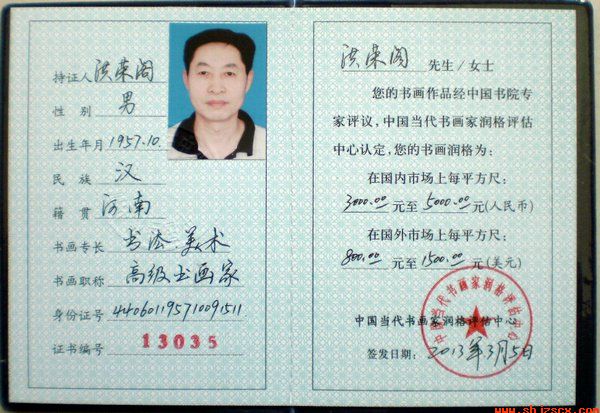 持证人 洪荣阁
性别 男
出生年月 1957.10.
民族 汉
籍贯 河南
书画专长 书法.美术
书画职称 高级书画家
身份证号 440601195710091511
证书编号 13035
洪荣阁 先生/女士
您的书画作品经中国书院专
家评议,中国当代书画家润格评估
中心认定,您的书画润格为:
在国内市场上每平方尺:
3000.00元至5000.00元(人民币)
在国外市场上每平方尺:
800.00元至1500.00元(美元)
中国当代书画家润格评估中心
签发日期: 2013年3月5日
中国当代书画家润格评估中心
www.shjzscx.com